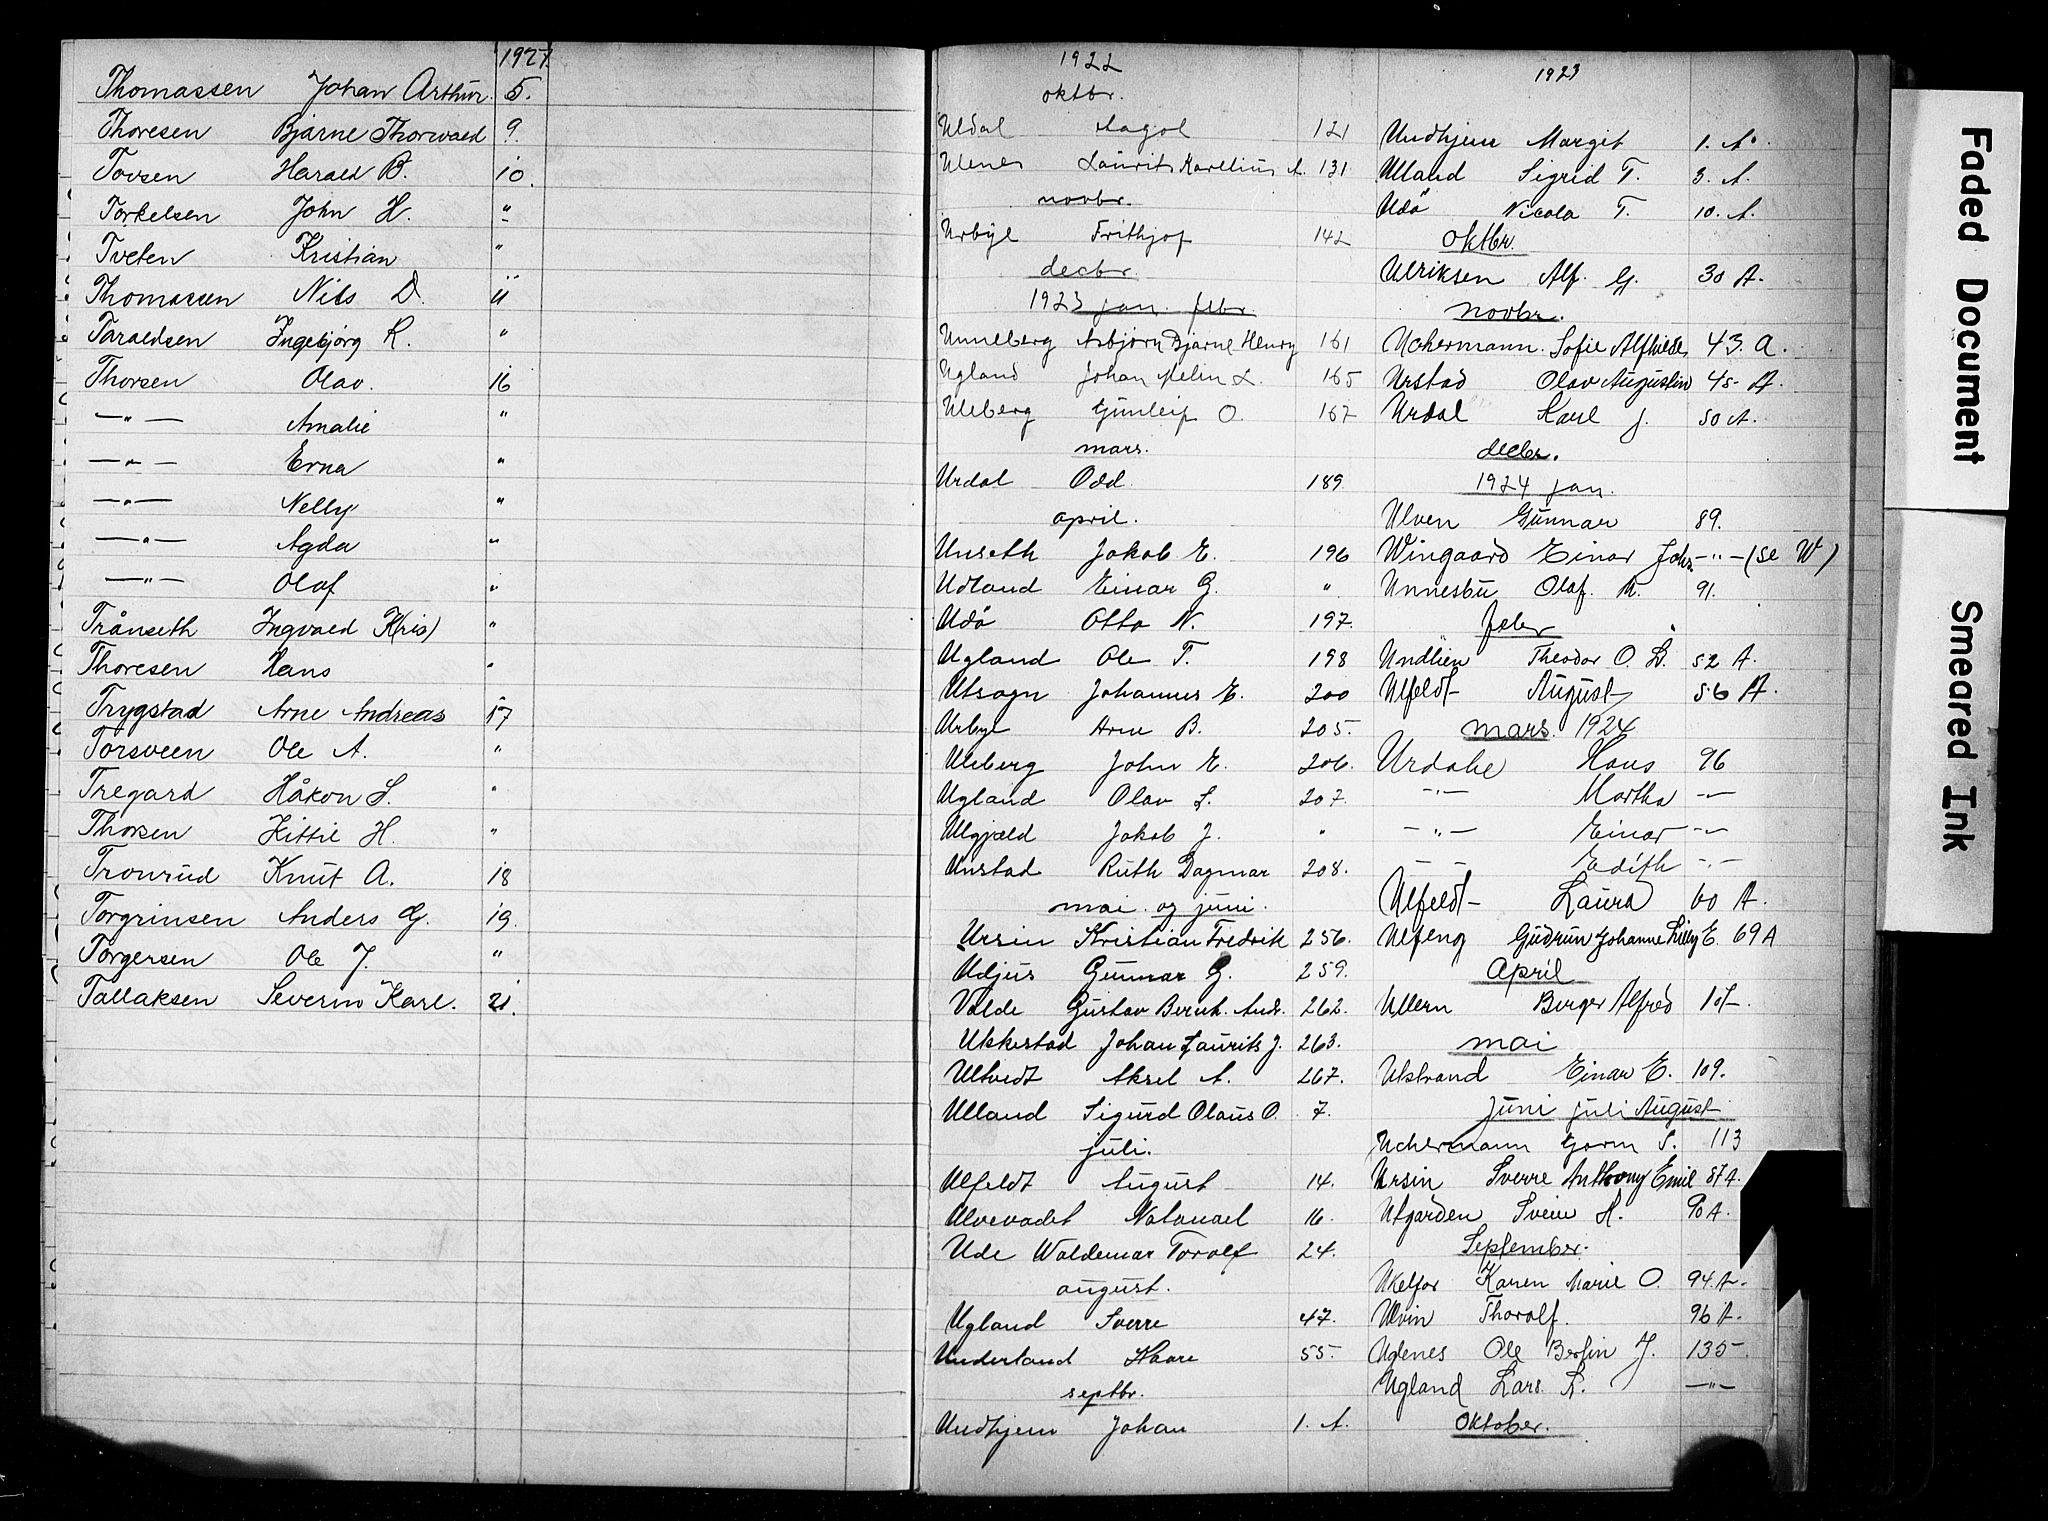 1927
Thomassen Johan Arthur. 5.
Thoresen Bjarne Thorvald 9.
Tovsen Harald B. 10.
Torkelsen John H. "
Tveten Kristian "
Thomassen Nils D. 11
Taraldsen Ingebjørg R. "
Thorsen Olav. 16
—"— Amalie "
—"— Erna "
—"— Nelly "
—"— Agda "
—"— Olaf "
Trånseth Ingvald Kris) "
Thoresen Hans "
Trygstad Arne Andreas 17
Torsveen Ole A. "
Tregard Håkon S. "
Thorsen Kittil H. "
Tronrud Knut A. 18
Torgrinsen Anders G. 19.
Torgersen Ole J. "
Tallaksen Severin Karl. 21.
1922
oktbr.
Uldal Aagot 121
Ulenes Laurits Karelius A. 131
novbr.
Urbye Frithjof 142
decbr.
1923 jan. febr
Unneberg Asbjørn Bjarne Henry 161
Ugland Johan Melin L. 165
Uleberg Gunleif O. 167
mars.
Urdal Odd. 189
april.
Unseth Jakob E. 196
Udland Einar G. "
Udö Otto N. 197.
Ugland Ole T. 198
Utsogn Johannes E. 200
Urbye Arne B. 205.
Uleberg John E. 206.
Ugland Olav S. 207.
Ulgjæld Jakob J. "
Unstad Ruth Dagmar 208.
mai. og juni.
Ursin Kristian Fredrik 256.
Udjus Gunnar G. 259.
Valde Gustav Bernh. Andr. 262.
Ukkestad Johan Laurits J. 263.
Ultvedt Aksel A. 267.
Ulland Sigurd Olaus O. 7.
juli.
Ulfeldt August 14.
Ulvevadet Natanael 16.
Ude Waldemar Torolf 24.
august.
Ugland Sverre 47.
Underland Kaare 55.
septbr.
Undhjem Johan 1. A.
1923
Undhjem Margit 1. A.
Ulland Sigrid T. 3. A.
Udö Nicola T. 10. A.
Oktbr.
Ulriksen Alf. G. 30 A.
Novbr.
Uchermann. Sofie Alfhilde, 43. A.
Urstad Olav Augustin 45 A.
Urdal Karl J. 50 A.
decbr.
1924 jan.
Ulven Gunnar 89.
Wingaard Einar Johs. —"—(se W)
Unnesbu Olaf. M. 91.
febr
Undlien Theodor O. L. 52 A.
Ulfeldt August 56 A.
mars. 1924
Urdahl Hans 96
—"— Martha —"—
—"— Einar —"—
—"— Edith —"—
Ulfeldt Laura 60 A.
Ulfeng Gudrun Johanne Lilly E. 69 A
April
Ullern Birger Alfred 107
mai
Ulstrand Einar E. 109.
Juni juli August
Uchermann Gorm S. 113
Ursin Sverre Anthony Emil 87 A.
Utgarden Svein H. 90 A.
September.
Ukelfor Karen Marie O. 94. A.
Ulvin Thorolf. 96 A.
Uglenes Ole Bertin J. 135
Ugland Lars L. —"—
Oktober.
Faded Document
Smeared Ink